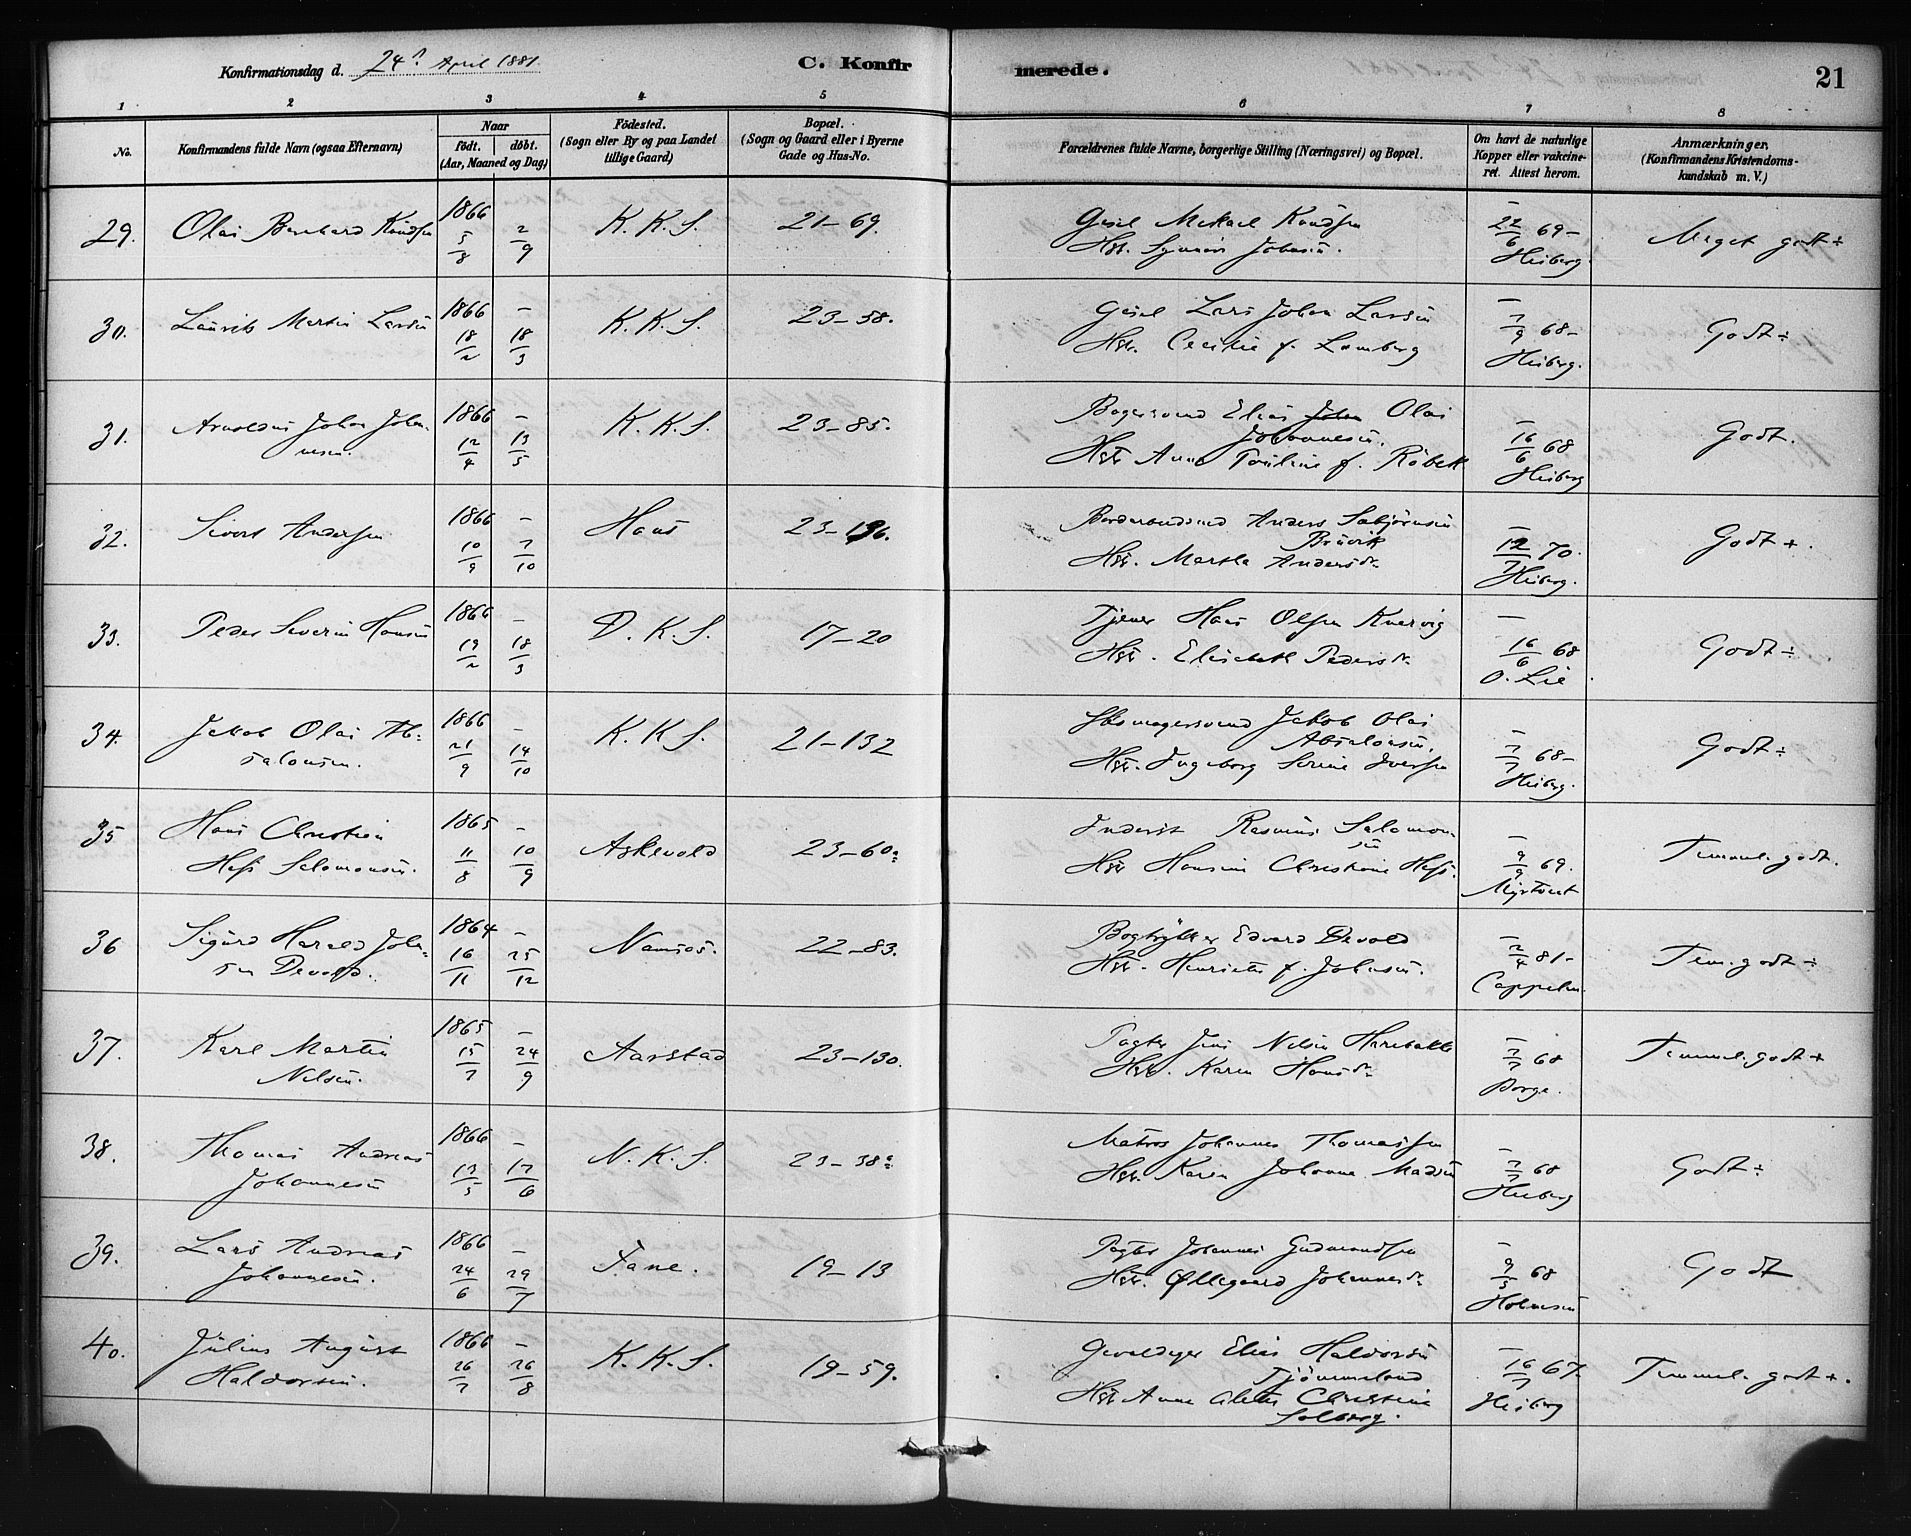 Konfirmationsdag d. 24 April 1881.
C. Konfirmerede.
21
1 2 3 4 5 6 7 8
No.
Konfirmandens fulde Navn (ogsaa Efternavn)
Naar
födt. döbt.
(Aar, Maaned og Dag)
Födested.
(Sogn eller By og paa Landet
tillige Gaard)
Bopæl.
(Sogn og Gaard eller i Byerne
Gade og Hus-No.
Forældrenes fulde Navne, borgerlige Stilling (Næringsvei) og Bopæl.
Om havt de naturlige
Kopper eller vakcine-
ret. Attest herom.
Anmærkninger,
(Konfirmandens Kristendoms-
kundskab m. V.)
29. Olai Bernhard Knudsen 1866 5/8 2/9 K. K. S. 21-69. Mikael Knudsen 22/6 69- Heiberg. Meget godt÷
Hstr.
30. Laurits Martin Larsen 1866 - 18/2 18/3 K. K. S. 23-58. Lars Johan Larsen - 7/9 68- Heiberg. Godt÷
Hstr. Cecilie f. Lamberg
31. Arnoldus Johan Johan-
nesen. 1866 - 12/4 13/5 K. K. S. 23-85. Bagersvend Elias Olai
Johannesen. - 16/6 68 Heiberg Godt.
Hstr Anne Pauline f. Röbek
32. Sivert Andersen 1866 - 10/9 7/10 Haus 23-136. Anders
Bruvik - 12/7 70. Heiberg. Godt+.
Hstr. Martha Andersdr.
33. Peder Severin Hansen 1866 - 19/2 18/3 D. K. S. 17-20 Tjener Hans Olsen - 16/6 68 O. Lie. Godt÷
Hstr. Elisabeth Pedersdr.
34. Jakob Olai Ab-
salonsen. 1866 - 21/9 14/10 K. K. S. 21-132 Jakob Olai
Absalonsen. - 7/7 68- Heiberg. Godt÷
Hstr. Ingeborg Serine Iversen
35 Hans Christian
Hess Salomonsen. 1865 - 11/8 10/9 Askevold 23-60a Inderst Rasmus Salomon-
sen - 9/9 69. Myrtvedt Temmel. godt.
Hstr Hansine Christiane Hess.
36 Sigurd Harald Johan-
sen Devold. 1864 - 16/11 25/12 Namsos. 22-83. Bogtrykker Edvard Devold - 2/4 81- Cappelen Tem. godt÷
Hstr. Henriette f. Johnsen.
37. Karl Martin
Nilsen. 1865 - 15/7 24/9 Aarstad 23-130. Pagter Jens Nilsen Harebakke - 7/7 68 Borge. Temmel. godt+
Hstr. Karen Hansdr.
38. Thomas Andreas
Johannesen 1866 - 13/5 17/6 N. K. S. 23-38a Matros Johannes Thomassen - 7/7 68 Heiberg Godt÷
Hstr. Karen Johanne Madsen
39. Lars Andreas
Johannesen. 1866 - 24/6 29/7 Fane. 19-13 Pagter Johannes Gudmundsen - 9/5 68 Holmsen Godt
Hstr. Øllegaard Johannesdr.
40. Julius August
Haldorsen. 1866 - 26/7 26/8 K. K. S. 19-59. Gevaldiger Elias Haldorsen
Tjömmeland - 16/7 67. Heiberg Temmel. godt+.
Hstr Anne Christine
Solberg.